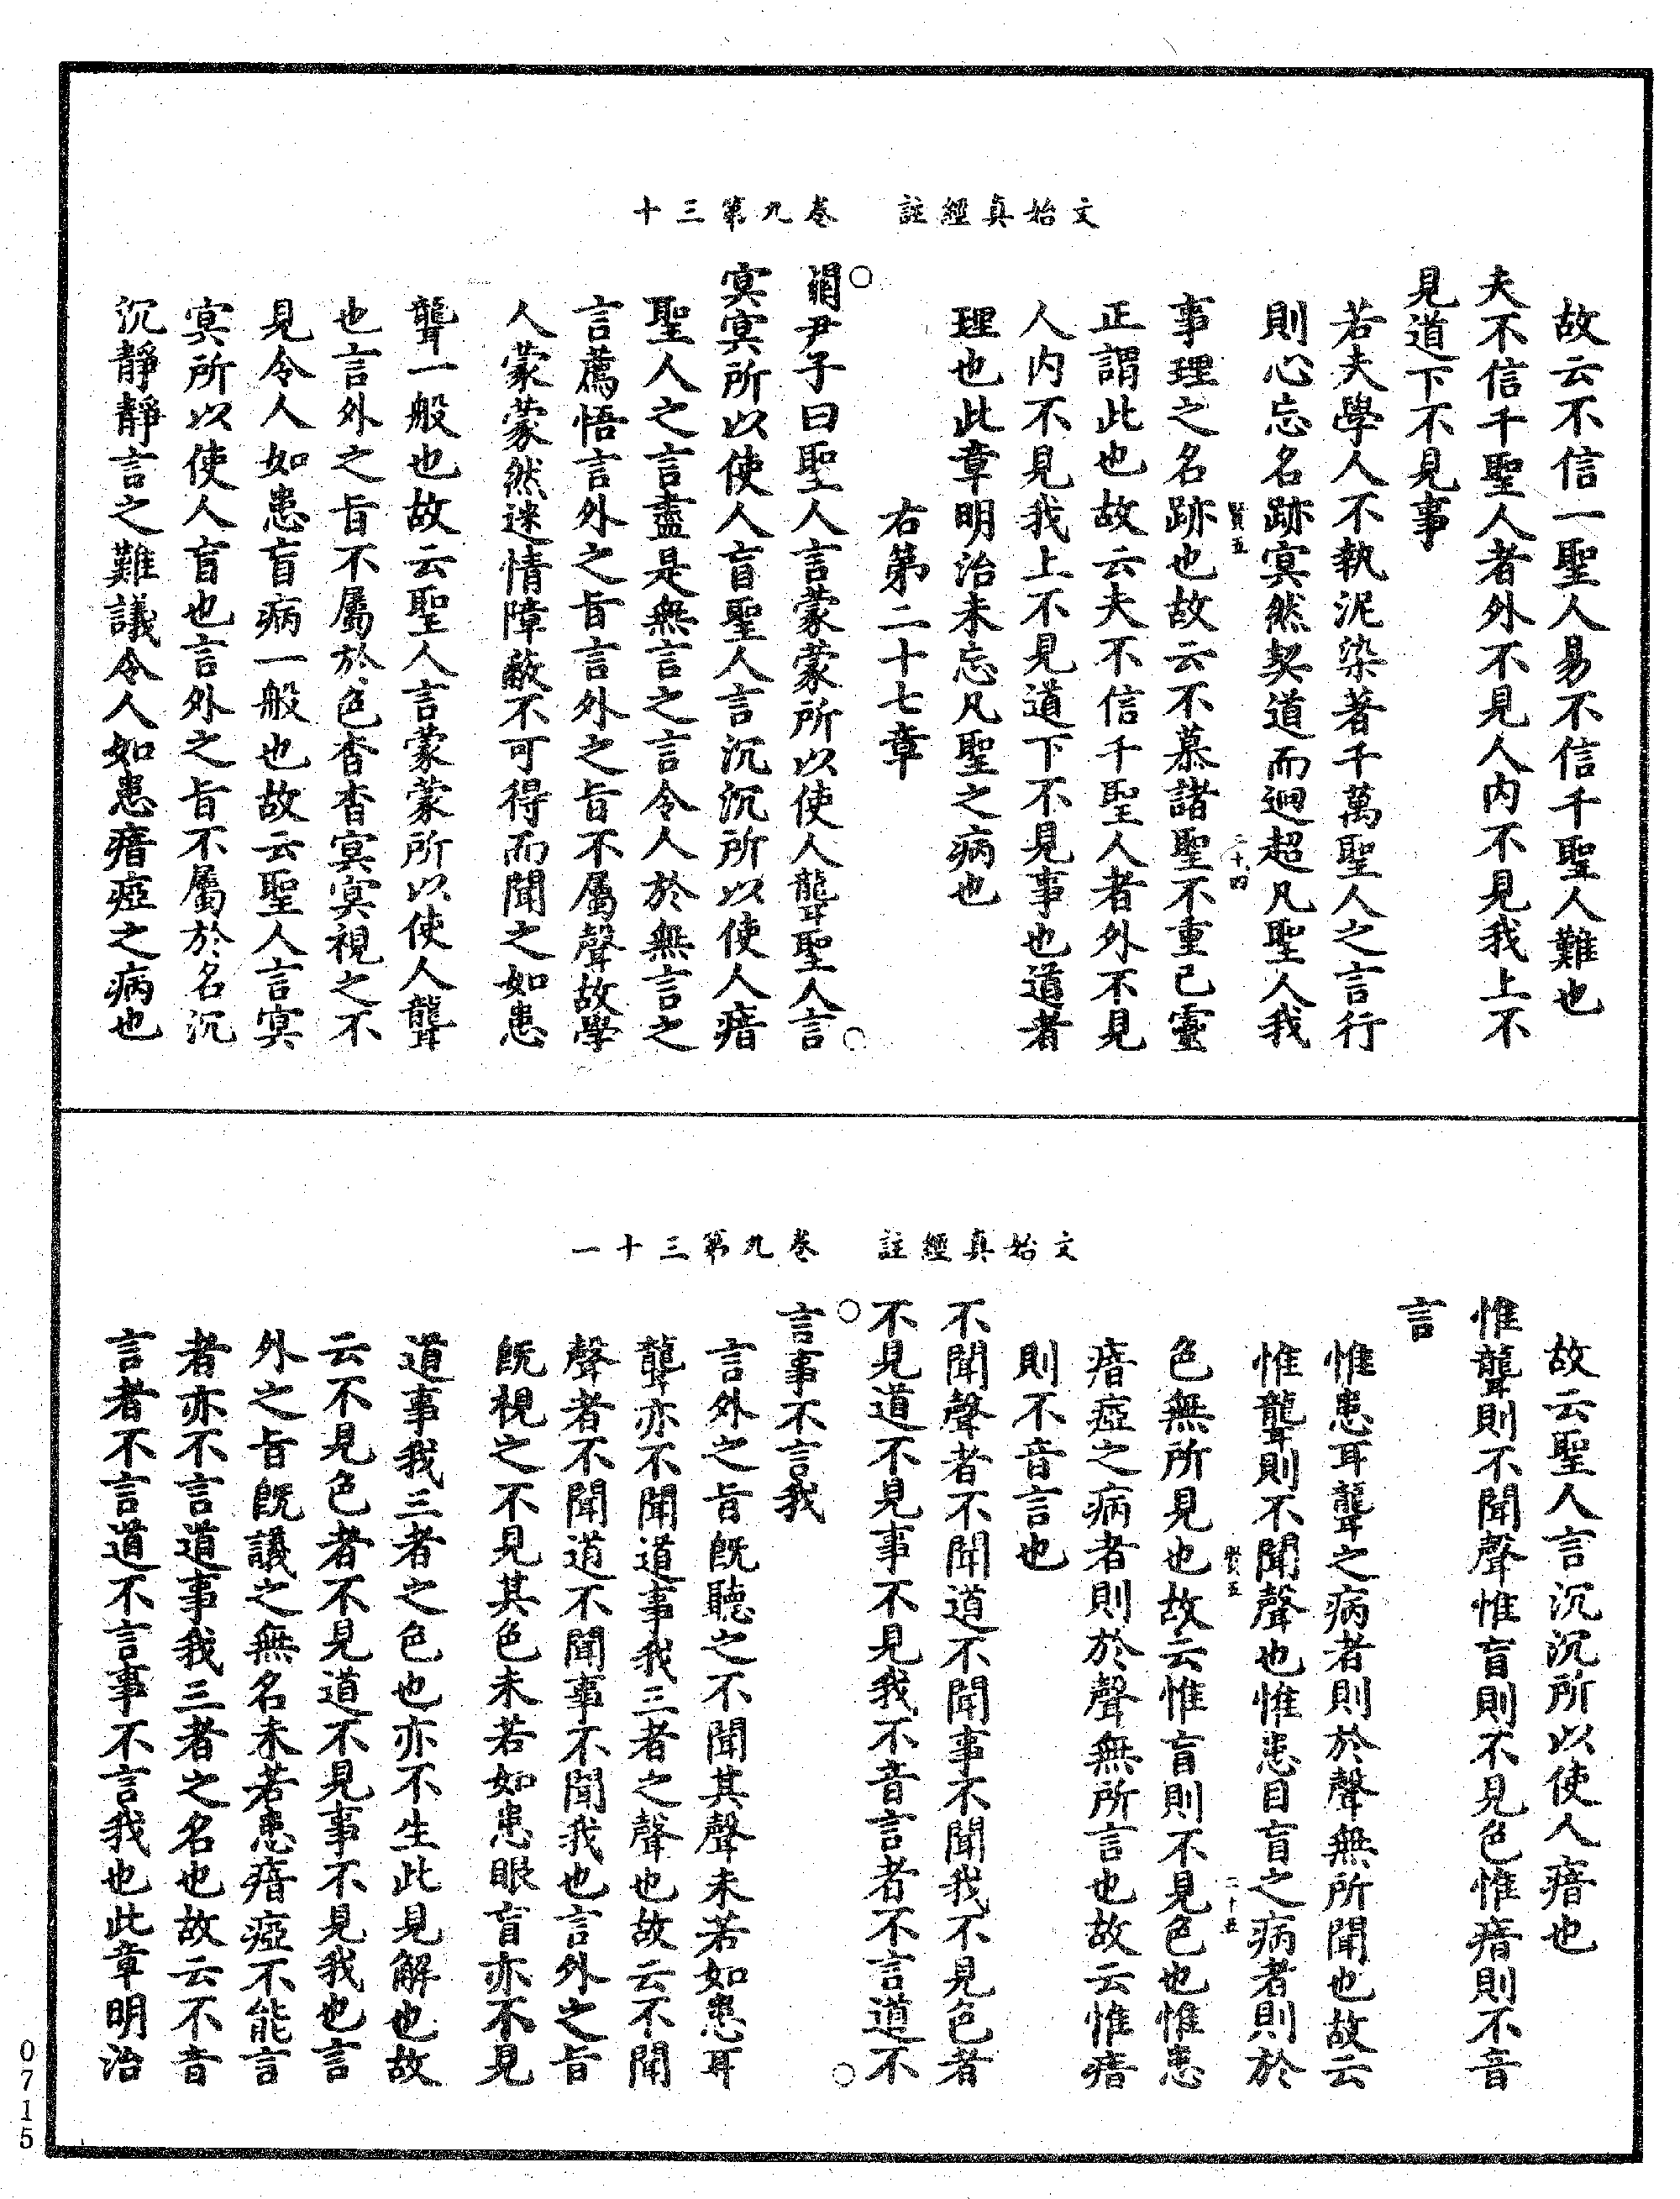 文始真經註　卷九第三十
故云不信一聖人易不信千聖人難也
夫不信千聖人者外不見人内不見我上不
見道下不見事
若夫學人不執泥染著千萬聖人之言行
則心忘名跡㝠然契道而迥超凡聖人我
賢五
二十四
事理之名跡也故云不慕諸聖不重己靈
正謂此也故云夫不信千聖人者外不見
人内不見我上不見道下不見事也道者
理也此章明治未忘凡聖之病也
右第二十七章
關尹子曰聖人言蒙蒙所以使人聾聖人言
㝠㝠所以使人盲聖人言沉沉所以使人瘖
聖人之言盡是無言之言令人於無言之
言薦悟言外之旨言外之旨不屬聲故學
人蒙蒙然迷情障蔽不可得而聞之如患
聾一般也故云聖人言蒙蒙所以使人聾
也言外之旨不屬於色杳杳㝠㝠視之不
見令人如患盲病一般也故云聖人言㝠
㝠所以使人盲也言外之旨不屬於名沉
沉靜靜言之難議令人如患瘖瘂之病也
文始真經註　卷九第三十一
故云聖人言沉沉所以使人瘖也
惟聾則不聞聲惟盲則不見色惟瘖則不音
言
惟患耳聾之病者則於聲無所聞也故云
惟聾則不聞聲也惟患目盲之病者則於
賢五
二十五
色無所見也故云惟盲則不見色也惟患
瘖瘂之病者則於聲無所言也故云惟瘖
則不音言也
不聞聲者不聞道不聞事不聞我不見色者
不見道不見事不見我不音言者不言道不
言事不言我
言外之旨旣聽之不聞其聲未若如患耳
聾亦不聞道事我三者之聲也故云不聞
聲者不聞道不聞事不聞我也言外之旨
旣視之不見其色未若如患眼盲亦不見
道事我三者之色也亦不生此見解也故
云不見色者不見道不見事不見我也言
外之旨旣議之無名未若患瘖瘂不能言
者亦不言道事我三者之名也故云不音
言者不言道不言事不言我也此章明治
0715